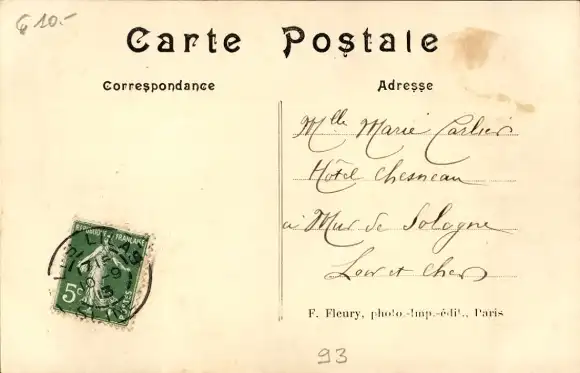 10.-
Carte Postale
Correspondance
Adresse
Mlle Marie Carlier
Hôtel Chesneau
à Mur de Sologne
Loir et Cher
REPUBLIQUE FRANÇAISE
LILAS
5c
POSTES
F. Fleury, photo.-Imp.-édit., Paris
93